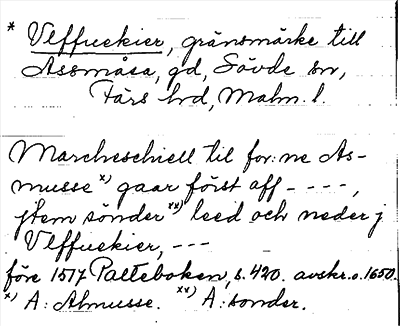 * Ulffuekier, gränsmärke till
Assmåsa, gd, Sövde sn,
Färs hd, Malm. l.
Marcheschiell til for:ne As-
musse x) gaar först aff - - - -,
jtem sönder xx) leed och neder j
Ulffuekier, - - -
före 1517 Palteboken, s. 420. avskr. o. 1650.
x) A: Almusse. xx) A: sonder.